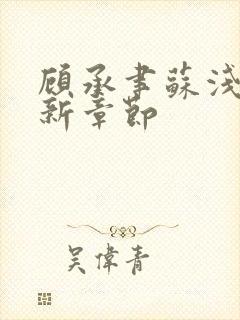 顾承书蘇浅
新章節
吴偉青